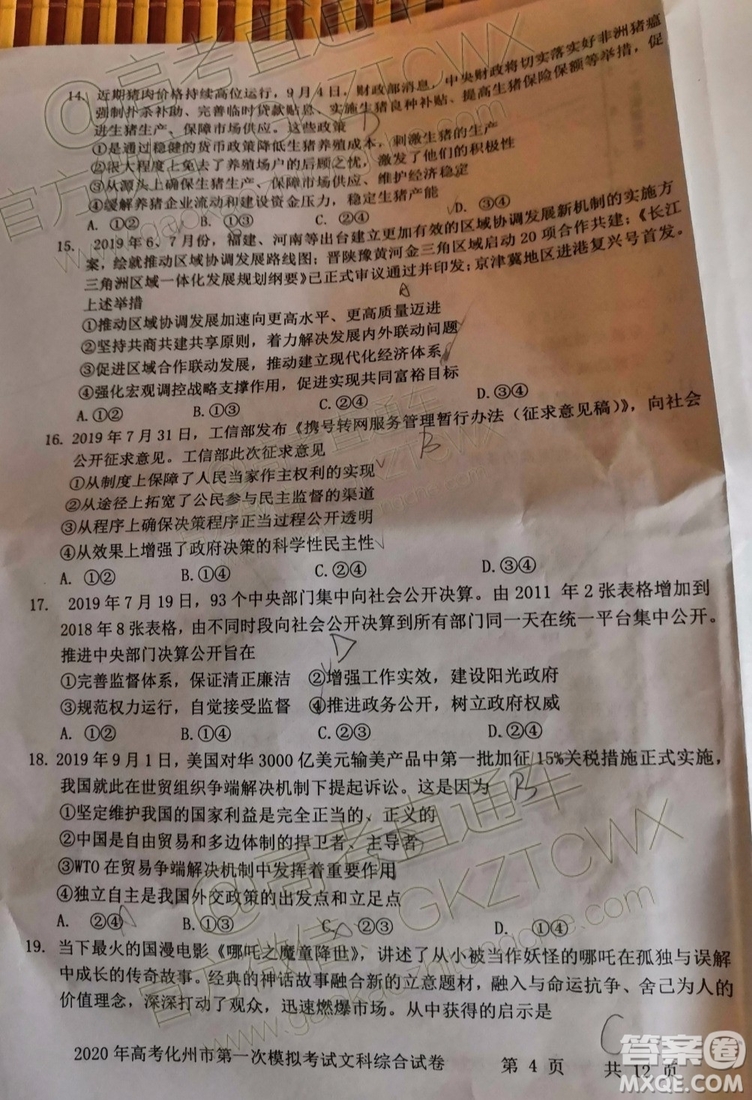 14. 近期猪肉价格持续高位运行，9月4日，财政部消息，中央财政将切实落实好非洲猪瘟
强制扑杀补助、完善临时贷款贴息、实施生猪良种补贴、提高生猪保险保额等举措，促
进生猪生产、保障市场供应。这些政策
①是通过稳健的货币政策降低生猪养殖成本，刺激生猪的生产
②很大程度上免去了养殖场户的后顾之忧，激发了他们的积极性
③从源头上确保生猪生产、保障市场供应、维护经济稳定
④缓解养猪企业流动和建设资金压力，稳定生猪产能
A. ①② B. ①③ C. ②④ D. ③④
15. 2019年6、7月份，福建、河南等出台建立更加有效的区域协调发展新机制的实施方
案，绘就推动区域协调发展路线图；晋陕豫黄河金三角区域启动20项合作共建；《长江
三角洲区域一体化发展规划纲要》已正式审议通过并印发；京津冀地区进港复兴号首发。
上述举措
A
①推动区域协调发展加速向更高水平、更高质量迈进
②坚持共商共建共享原则，着力解决发展内外联动问题
③促进区域合作联动发展，推动建立现代化经济体系
④强化宏观调控战略支撑作用，促进实现共同富裕目标
A. ①② B. ①③ C. ②④ D. ③④
16. 2019年7月31日，工信部发布《携号转网服务管理暂行办法（征求意见稿）》，向社会
公开征求意见。工信部此次征求意见
B
①从制度上保障了人民当家作主权利的实现
②从途径上拓宽了公民参与民主监督的渠道
③从程序上确保决策程序正当过程公开透明
④从效果上增强了政府决策的科学性民主性
A. ①② B. ①④ C. ②③ D. ③④
17. 2019年7月19日，93个中央部门集中向社会公开决算。由2011 年2张表格增加到
2018年8张表格，由不同时段向社会公开决算到所有部门同一天在统一平台集中公开。
推进中央部门决算公开旨在
D
①完善监督体系，保证清正廉洁 ②增强工作实效，建设阳光政府
③规范权力运行，自觉接受监督 ④推进政务公开，树立政府权威
A. ①② B. ①③ C. ②④ D. ③④
18. 2019年9月1日，美国对华3000亿美元输美产品中第一批加征15%关税措施正式实施，
我国就此在世贸组织争端解决机制下提起诉讼。这是因为
B
①坚定维护我国的国家利益是完全正当的、正义的
②中国是自由贸易和多边体制的捍卫者、主导者
③WTO在贸易争端解决机制中发挥着重要作用
④独立自主是我国外交政策的出发点和立足点
A. ②④ B. ①③ C. ②③ D. ①④
19. 当下最火的国漫电影《哪吒之魔童降世》，讲述了从小被当作妖怪的哪吒在孤独与误解
中成长的传奇故事。经典的神话故事融合新的立意题材，融入与命运抗争、舍己为人的
价值理念，深深打动了观众，迅速燃爆市场。从中获得的启示是
C
2020年高考化州市第一次模拟考试文科综合试卷 第 4 页 共 12 页
@高考直通车
GKZTCWX
@高考直通车
GKZTCWX
答案圈
MXQE.COM